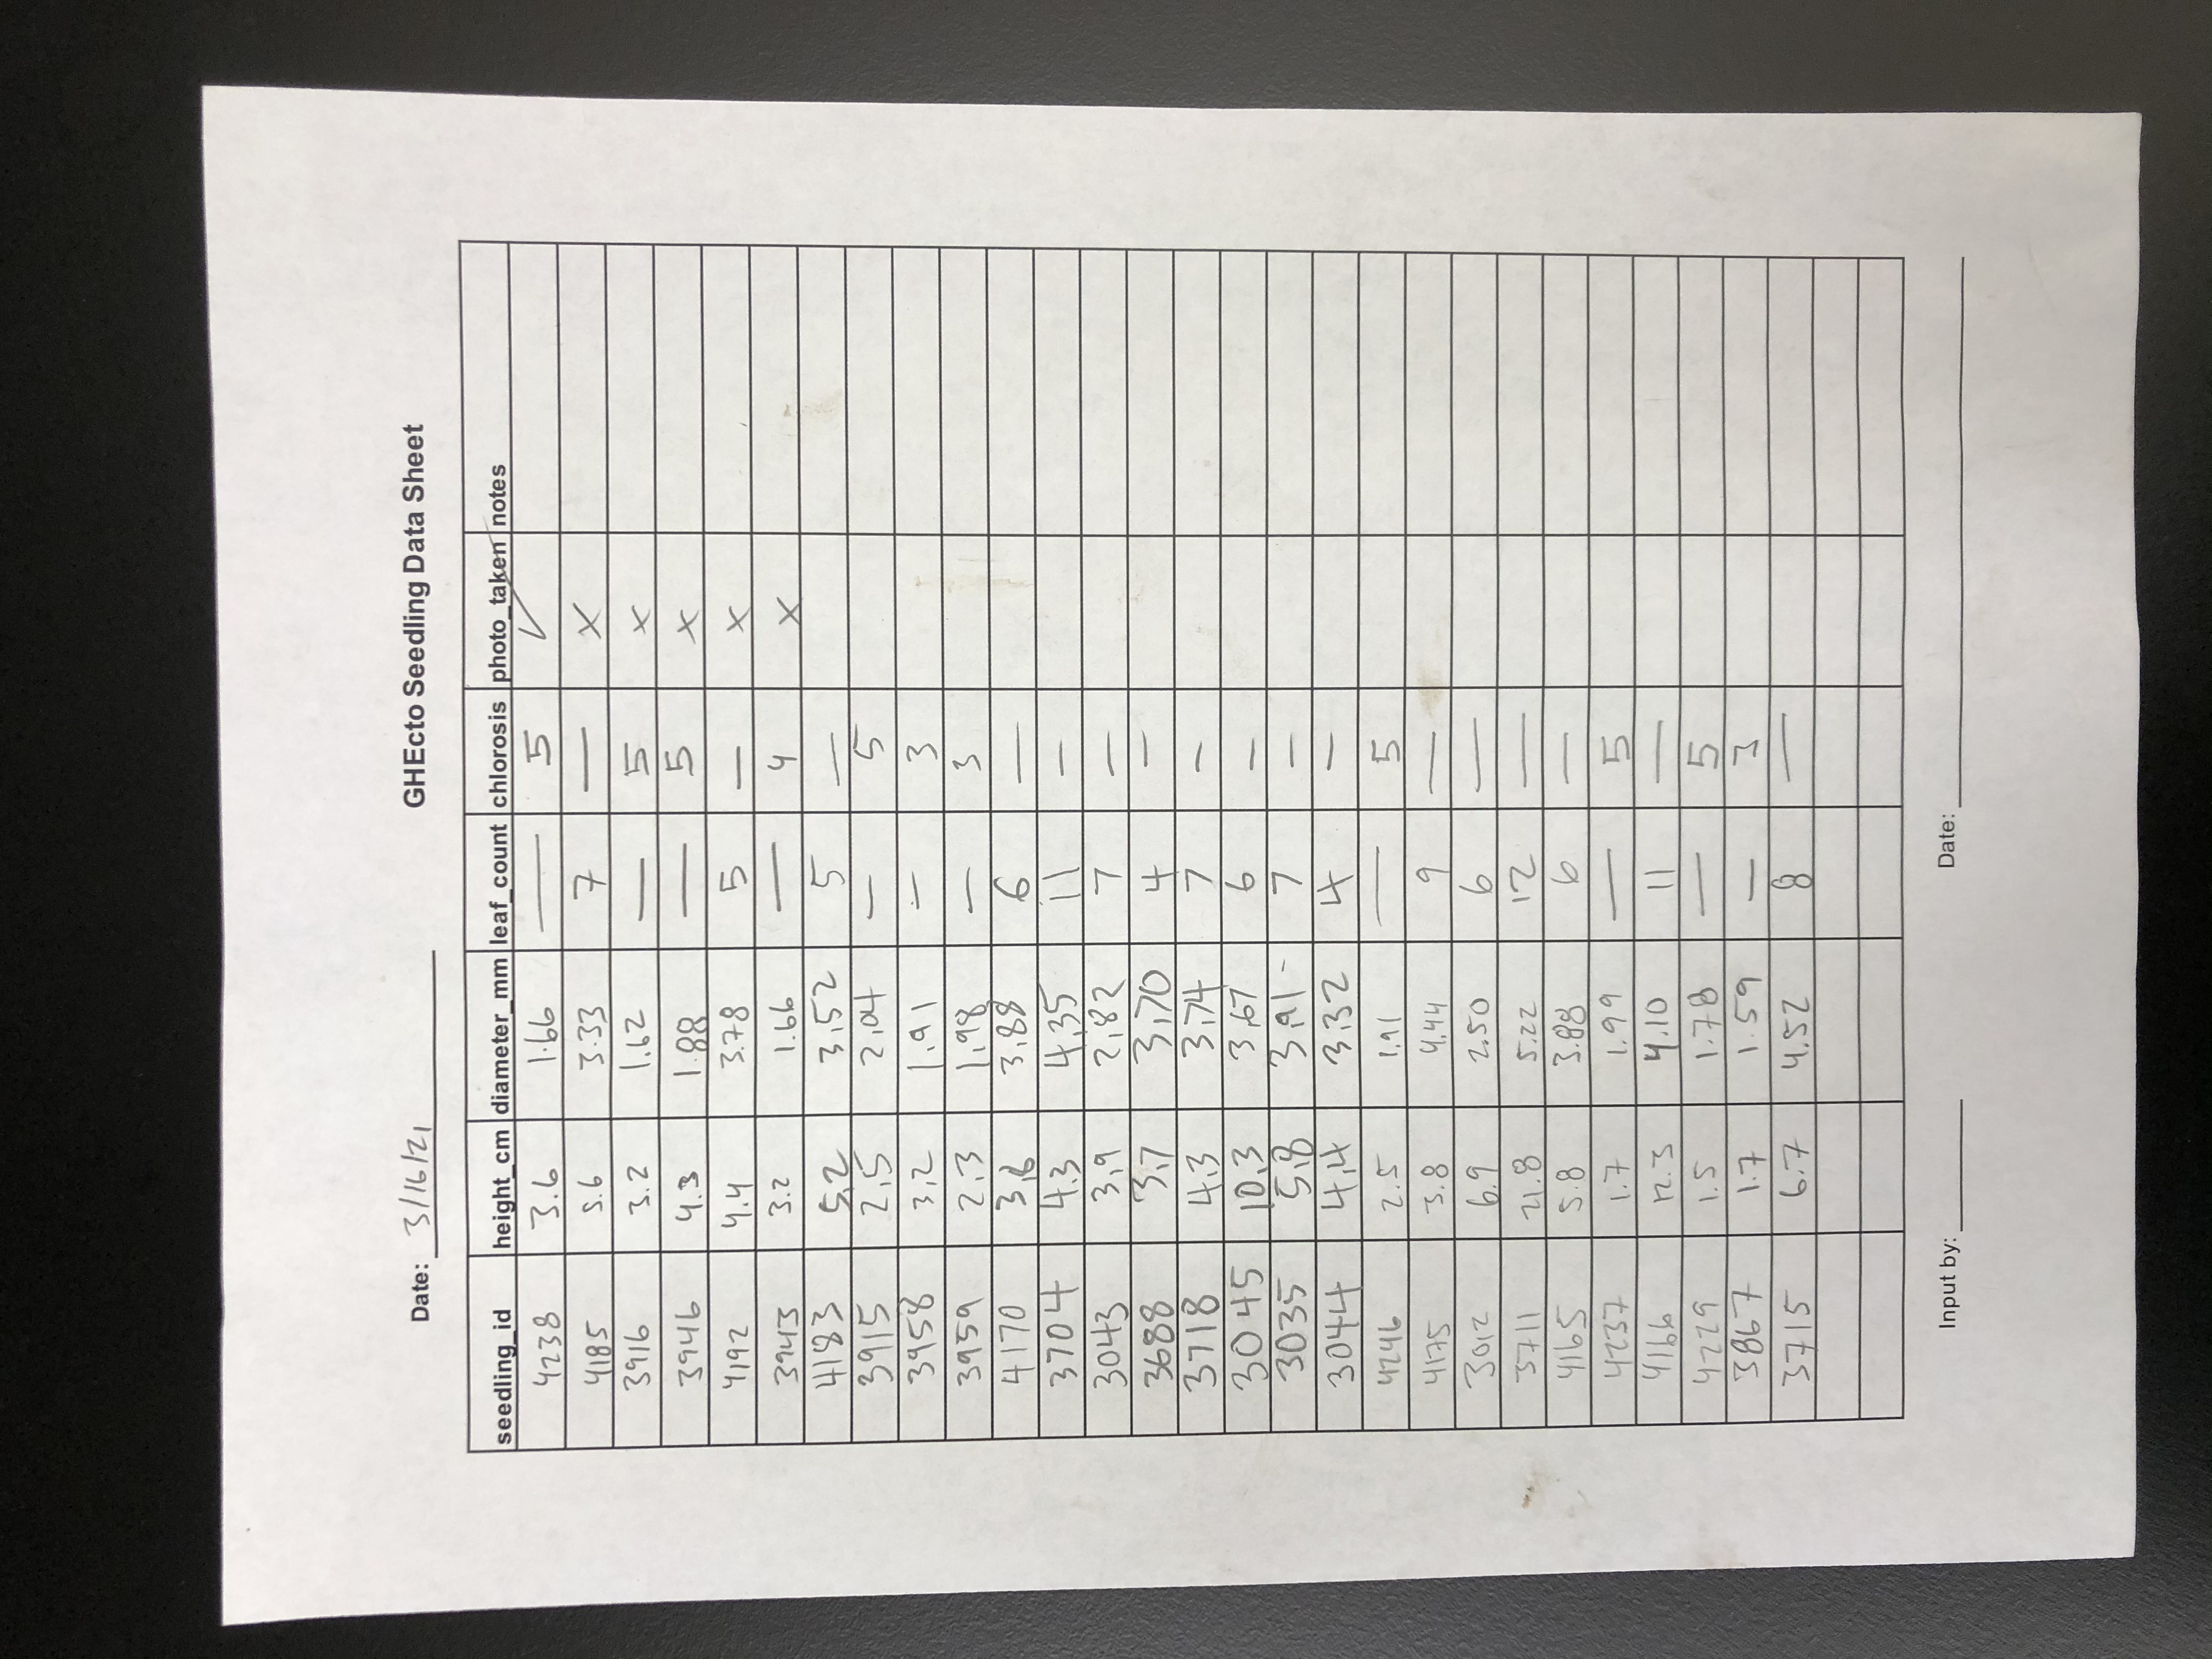 Date: 3/16/21 GHEcto Seedling Data Sheet
seedling_id height_cm diameter_mm leaf_count chlorosis photo_taken notes
4238 3.6 1.66 — 5 ✓
4185 5.6 3.33 7 — X
3916 3.2 1.62 — 5 X
3946 4.3 1.88 — 5 X
4192 4.4 3.78 5 — X
3943 3.2 1.66 — 4 X
4183 5.2 3.52 5 —
3915 2.5 2.04 — 5
3958 3.2 1.91 — 3
3959 2.3 1.98 — 3
4170 3.6 3.88 6 —
3704 4.3 4.35 11 —
3043 3.9 2.82 7 —
3688 3.7 3.70 4 —
3718 4.3 3.74 7 —
3045 10.3 3.67 6 —
3035 5.8 3.91 - 7 —
3044 4.4 3.32 4 —
4246 2.5 1.91 — 5
4175 3.8 4.44 9 —
3012 6.9 2.50 6 —
3711 21.8 5.22 12 —
4165 5.8 3.88 6 —
4237 1.7 1.99 — 5
4166 12.3 4.10 11 —
4229 1.5 1.78 — 5
3867 1.7 1.59 — 3
3715 6.7 4.52 8 —
Input by: Date: